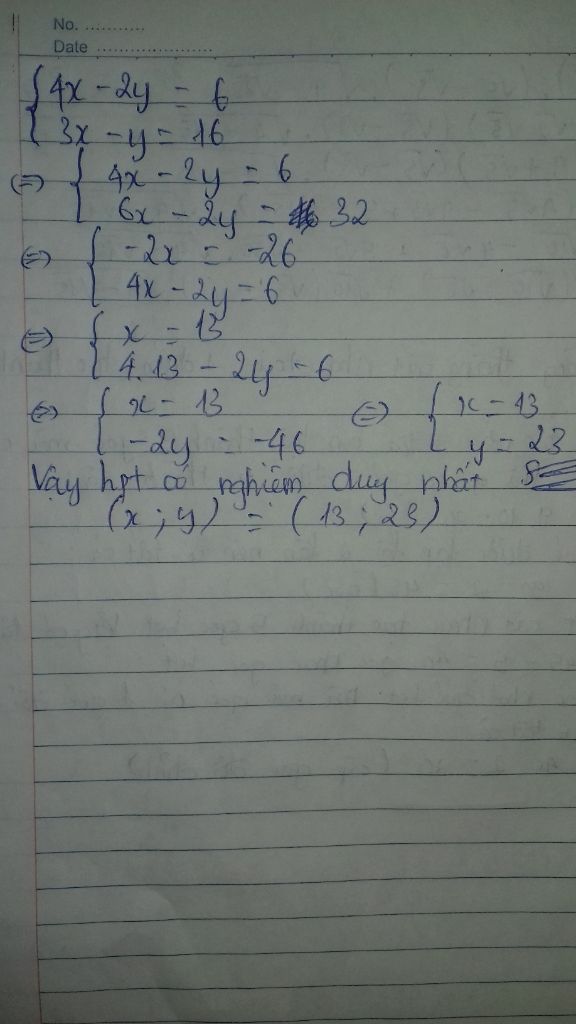 No. ...........
Date .....................
4x - 2y = 6
3x - y = 16
<=> 4x - 2y = 6
6x - 2y = 32
<=> -2x = -26
4x - 2y = 6
<=> x = 13
4.13 - 2y = 6
<=> x = 13 <=> x = 13
-2y = -46 y = 23
Vậy hpt có nghiệm duy nhất
(x ; y) = (13 ; 23)